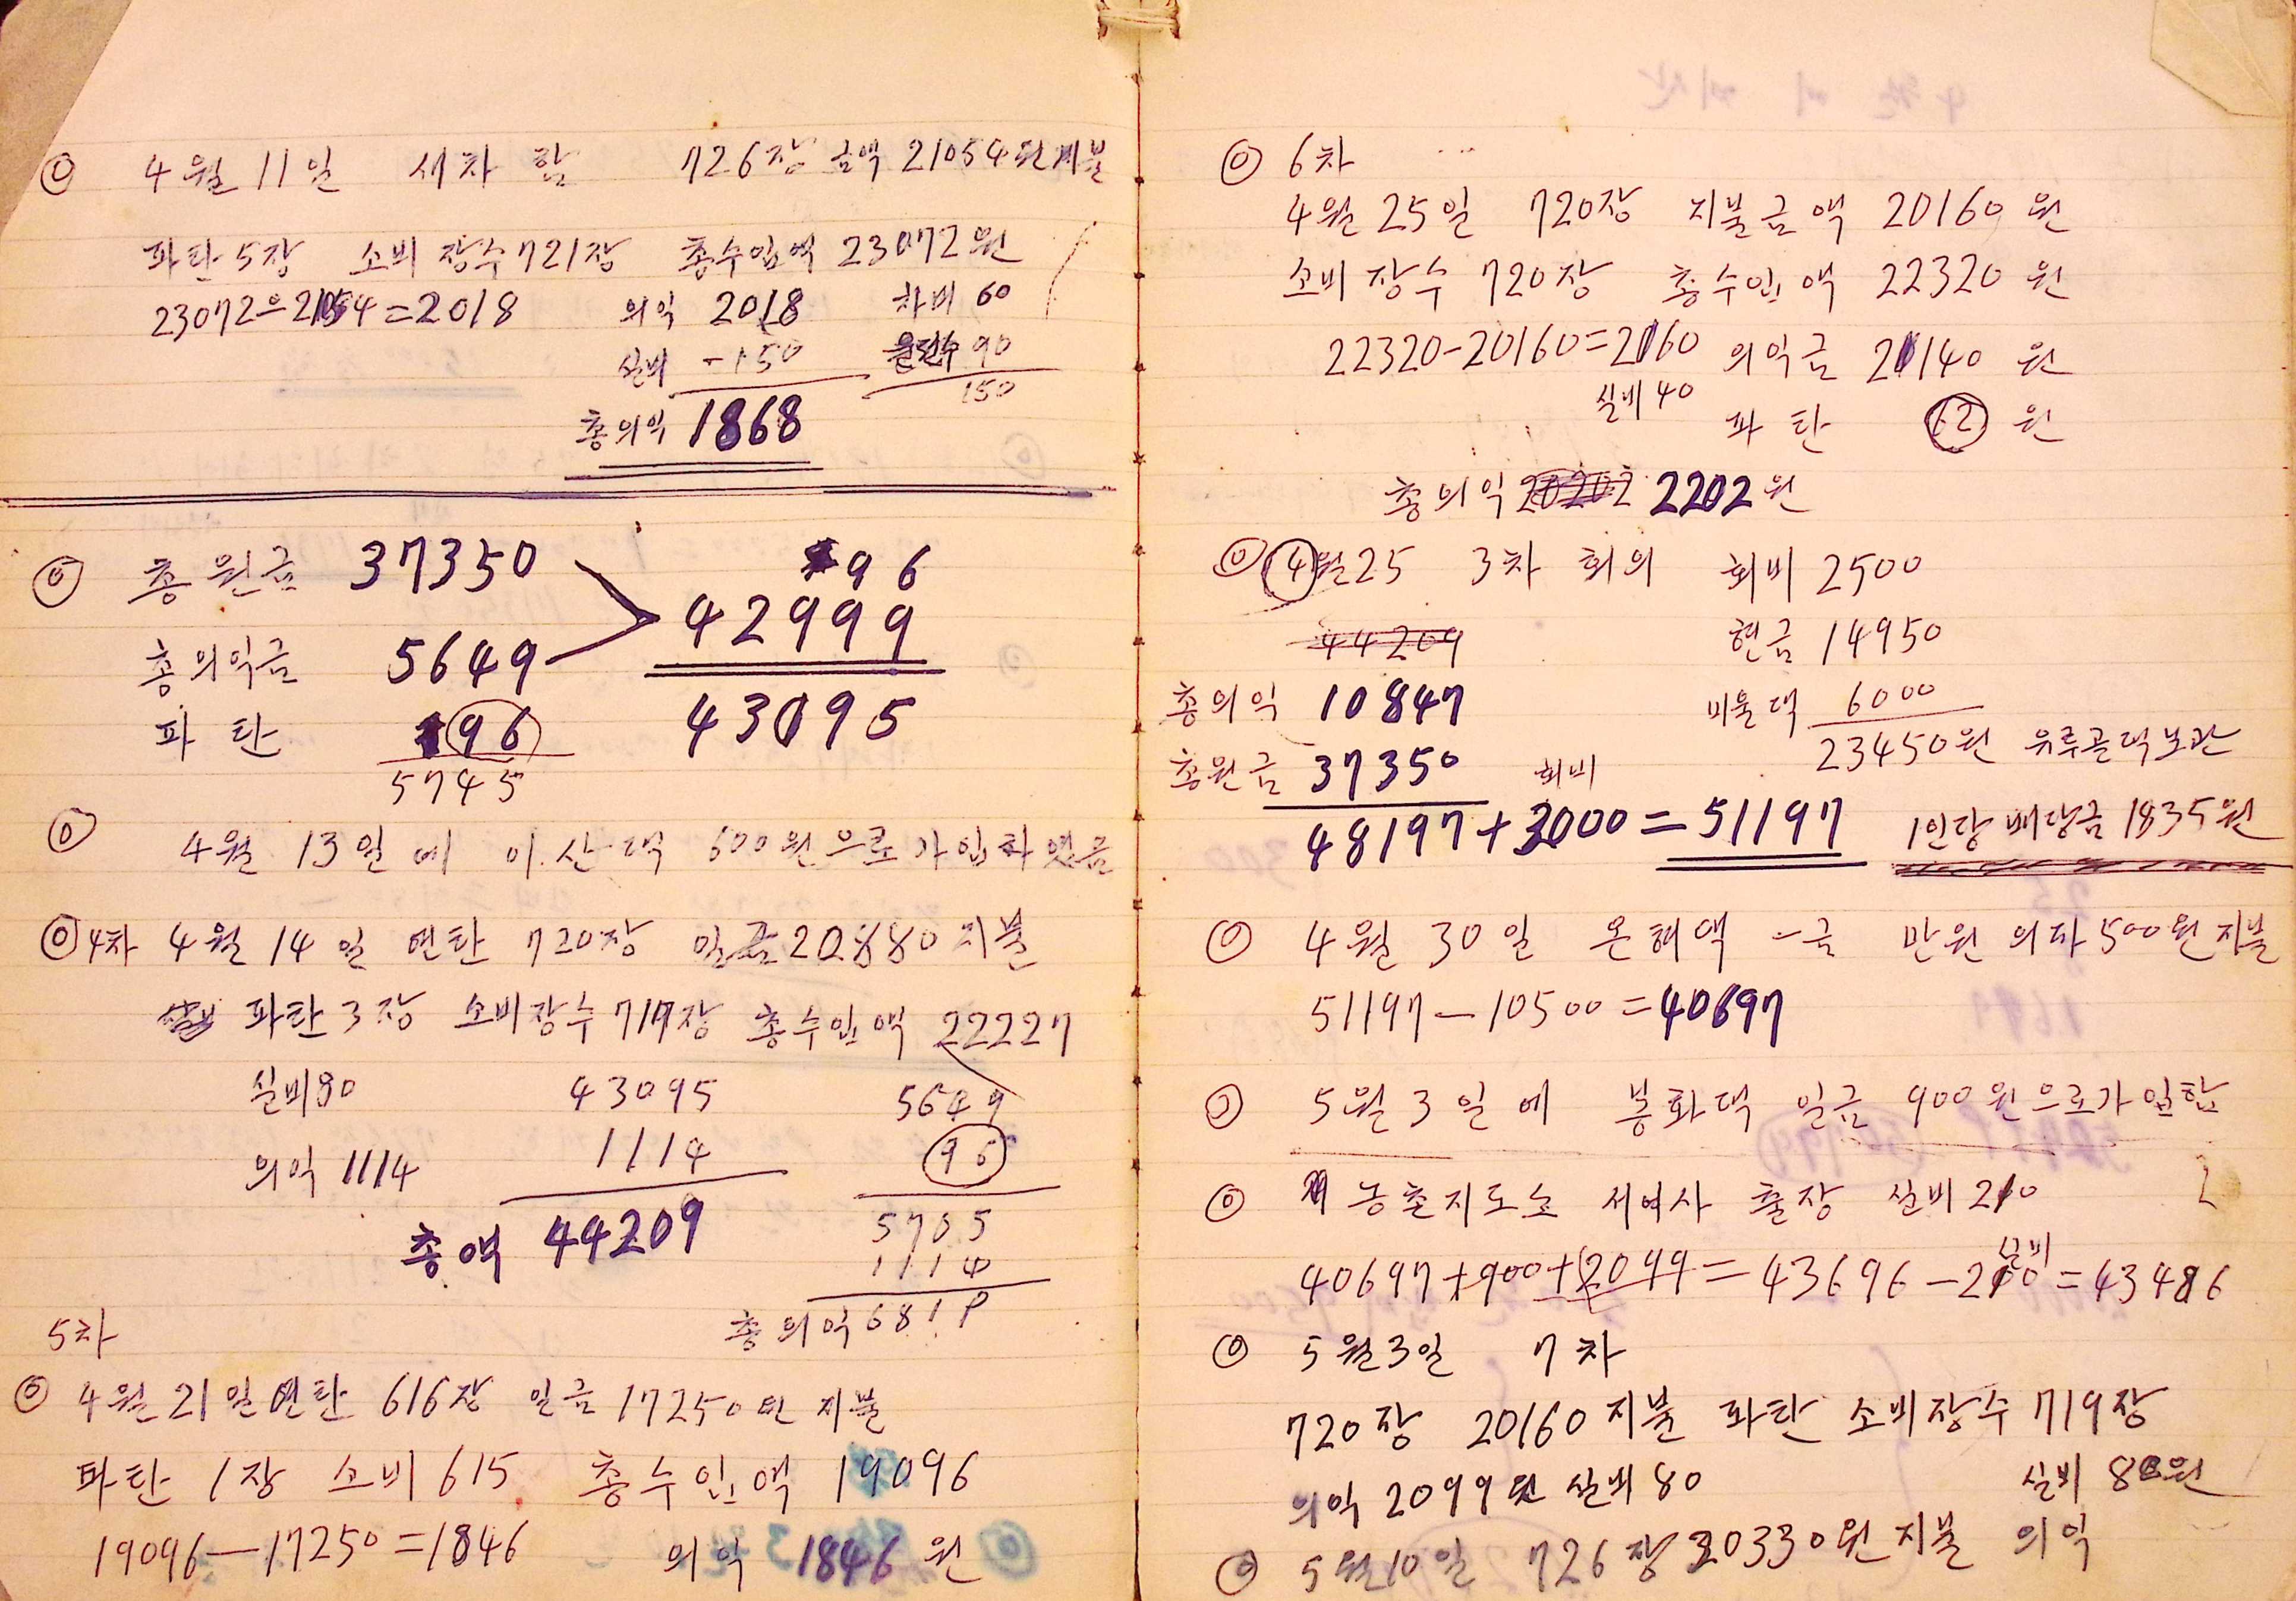 4월 11일 세차 함 726장 금액 21054원 지불
파탄 5장 소비 장수 721장 총수입액 23072원
23072-21054=2018 의익 2018 차비 60
실비 -150 90
150
총의익 1868
총원금 37350 96
42999
총의익금 5649
43095
파탄 96
5745
4월 13일에 이산댁 600원으로 가입하였음
4차 4월 14일 연탄 720장 일금 20880 지불
파탄 3장 소비장수 717장 총수입액 22227
실비 80 43095 5649
의익 1114 1114 96
총액 44209 5705
1114
총의익 6819
5차
4월 21일 연탄 616장 일금 17250원 지불
파탄 1장 소비 615 총수입액 19096
19096-17250=1846 의익 1846원
6차
4월 25일 720장 지불금액 20160원
소비장수 720장 총수입액 22320원
22320-20160=2160 의익금 2140원
실비 40 파탄 62원
총의익 2202원
4월 25 3차 회의 회비 2500
44209 현금 14950
총의익 10847 6000
총원금 37350 회비 23450원 유루골댁 보관
48197+3000=51197 1인당 배당금 1835원
4월 30일 온혜댁 일금 만원 의자 500원 지불
51197-10500=40697
5월 3일에 봉화댁 일금 900원으로 가입함
농촌지도소 서여사 출장 실비 210
40697+900+2099=43696-210=43486
실비
5월 3일 7차
720장 20160 지불 파탄 소비장수 719장
의익 2099원 실비 80 실비 80원
5월 10일 726장 20330원 지불 의익